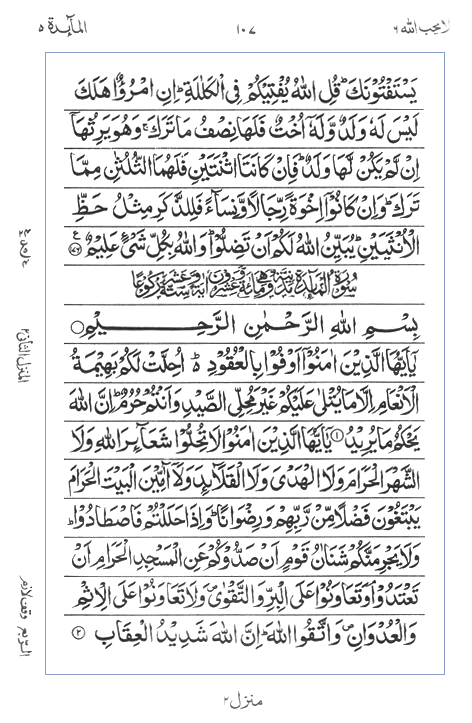 لا يحب الله ٦
١٠٧
المآئدة ٥
يَسْتَفْتُوْنَكَ ؕ قُلِ اللّٰهُ يُفْتِيْكُمْ فِى الْكَلٰلَةِ ؕ اِنِ امْرُؤٌا هَلَكَ
لَيْسَ لَهٗ وَلَدٌ وَّلَهٗۤ اُخْتٌ فَلَهَا نِصْفُ مَا تَرَكَ ۚ وَهُوَ يَرِثُهَاۤ
اِنْ لَّمْ يَكُنْ لَّهَا وَلَدٌ ؕ فَاِنْ كَانَتَا اثْنَتَيْنِ فَلَهُمَا الثُّلُثٰنِ مِمَّا
تَرَكَ ؕ وَاِنْ كَانُوْۤا اِخْوَةً رِّجَالًا وَّنِسَآءً فَلِلذَّكَرِ مِثْلُ حَظِّ
الْاُنْثَيَيْنِ ؕ يُبَيِّنُ اللّٰهُ لَكُمْ اَنْ تَضِلُّوْا ؕ وَاللّٰهُ بِكُلِّ شَىْءٍ عَلِيْمٌ ﴿۱۷۶﴾
سورة المائدة مدنية وهى مائة وعشرون اية وستة عشر ركوعا
بِسْمِ اللّٰهِ الرَّحْمٰنِ الرَّحِيْمِ ○
يٰۤاَيُّهَا الَّذِيْنَ اٰمَنُوْۤا اَوْفُوْا بِالْعُقُوْدِ ؕ اُحِلَّتْ لَكُمْ بَهِيْمَةُ
الْاَنْعَامِ اِلَّا مَا يُتْلٰى عَلَيْكُمْ غَيْرَ مُحِلِّى الصَّيْدِ وَاَنْتُمْ حُرُمٌ ؕ اِنَّ اللّٰهَ
يَحْكُمُ مَا يُرِيْدُ ﴿۱﴾ يٰۤاَيُّهَا الَّذِيْنَ اٰمَنُوْا لَا تُحِلُّوْا شَعَآئِرَ اللّٰهِ وَلَا
الشَّهْرَ الْحَرَامَ وَلَا الْهَدْىَ وَلَا الْقَلَآئِدَ وَلَاۤ آٰمِّيْنَ الْبَيْتَ الْحَرَامَ
يَبْتَغُوْنَ فَضْلًا مِّنْ رَّبِّهِمْ وَرِضْوَانًا ؕ وَاِذَا حَلَلْتُمْ فَاصْطَادُوْا ؕ
وَلَا يَجْرِمَنَّكُمْ شَنَاٰنُ قَوْمٍ اَنْ صَدُّوْكُمْ عَنِ الْمَسْجِدِ الْحَرَامِ اَنْ
تَعْتَدُوْا ۘ وَتَعَاوَنُوْا عَلَى الْبِرِّ وَالتَّقْوٰى ۖ وَلَا تَعَاوَنُوْا عَلَى الْاِثْمِ
وَالْعُدْوَانِ ۖ وَاتَّقُوا اللّٰهَ ؕ اِنَّ اللّٰهَ شَدِيْدُ الْعِقَابِ ﴿۲﴾
المنزل الثانى ٢
الربع وقف لازم
منزل ٢